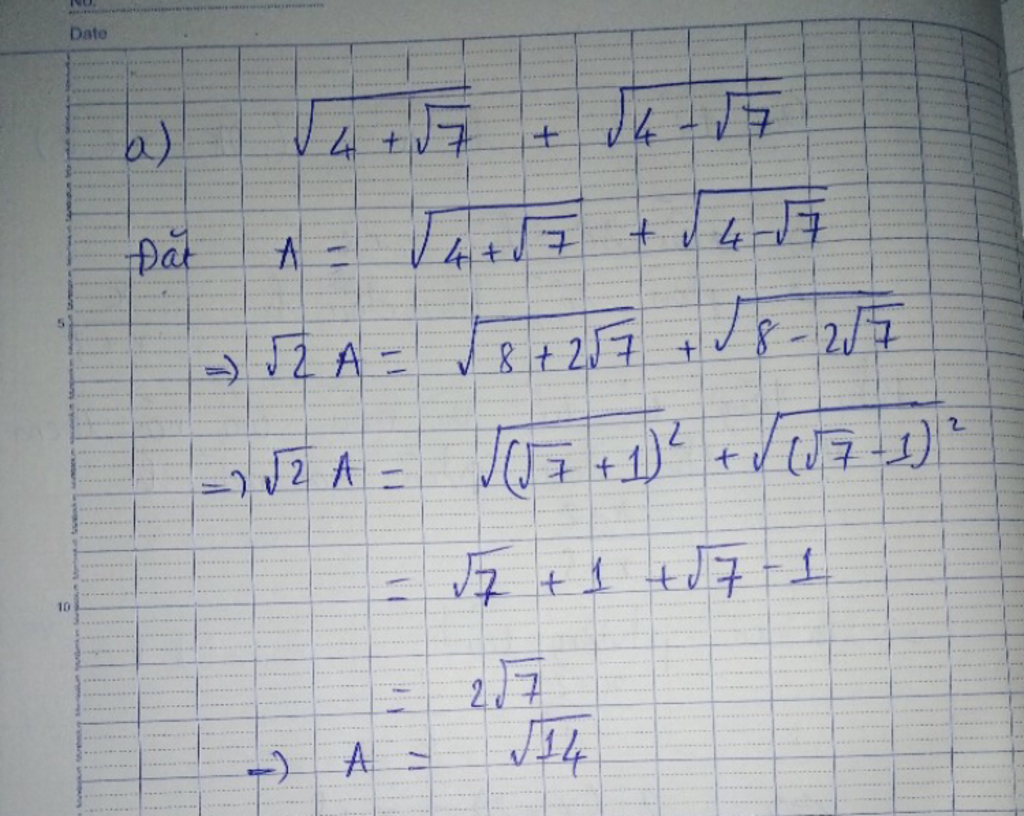 No.
Date
a) √(4 + √7) + √(4 - √7)
Đặt A = √(4 + √7) + √(4 - √7)
5
=> √2 A = √(8 + 2√7) + √(8 - 2√7)
=> √2 A = √((√7 + 1)²) + √((√7 - 1)²)
= √7 + 1 + √7 - 1
10
= 2√7
=> A = √14